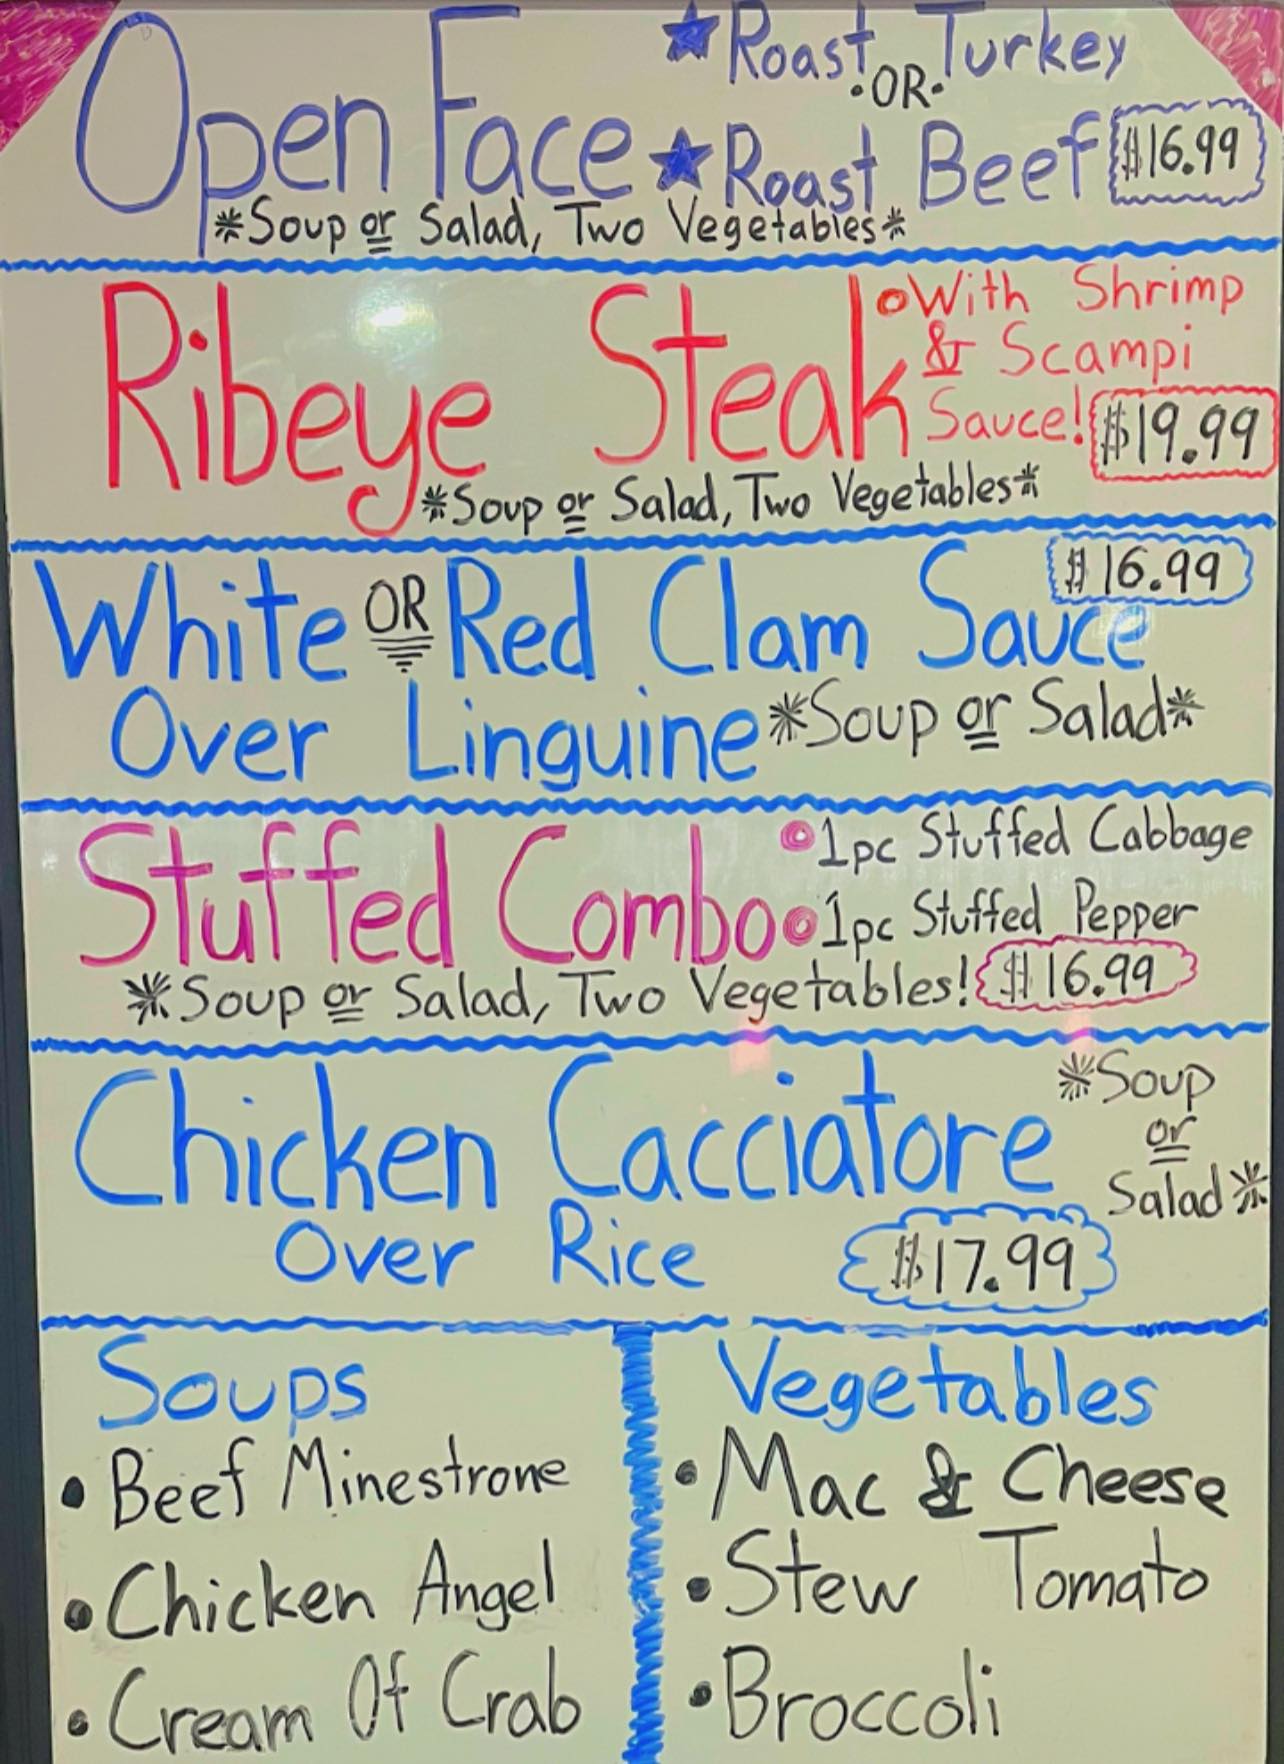 Open Face ★ Roast Turkey
•OR•
★ Roast Beef $16.99
*Soup or Salad, Two Vegetables*
Ribeye Steak • With Shrimp
& Scampi
Sauce! $19.99
*Soup or Salad, Two Vegetables*
$16.99
White OR Red Clam Sauce
Over Linguine *Soup or Salad*
Stuffed Combo • 1pc Stuffed Cabbage
• 1pc Stuffed Pepper
*Soup or Salad, Two Vegetables! $16.99
Chicken Cacciatore *Soup
or
Salad*
Over Rice $17.99
Soups
• Beef Minestrone
• Chicken Angel
• Cream Of Crab
Vegetables
• Mac & Cheese
• Stew Tomato
• Broccoli